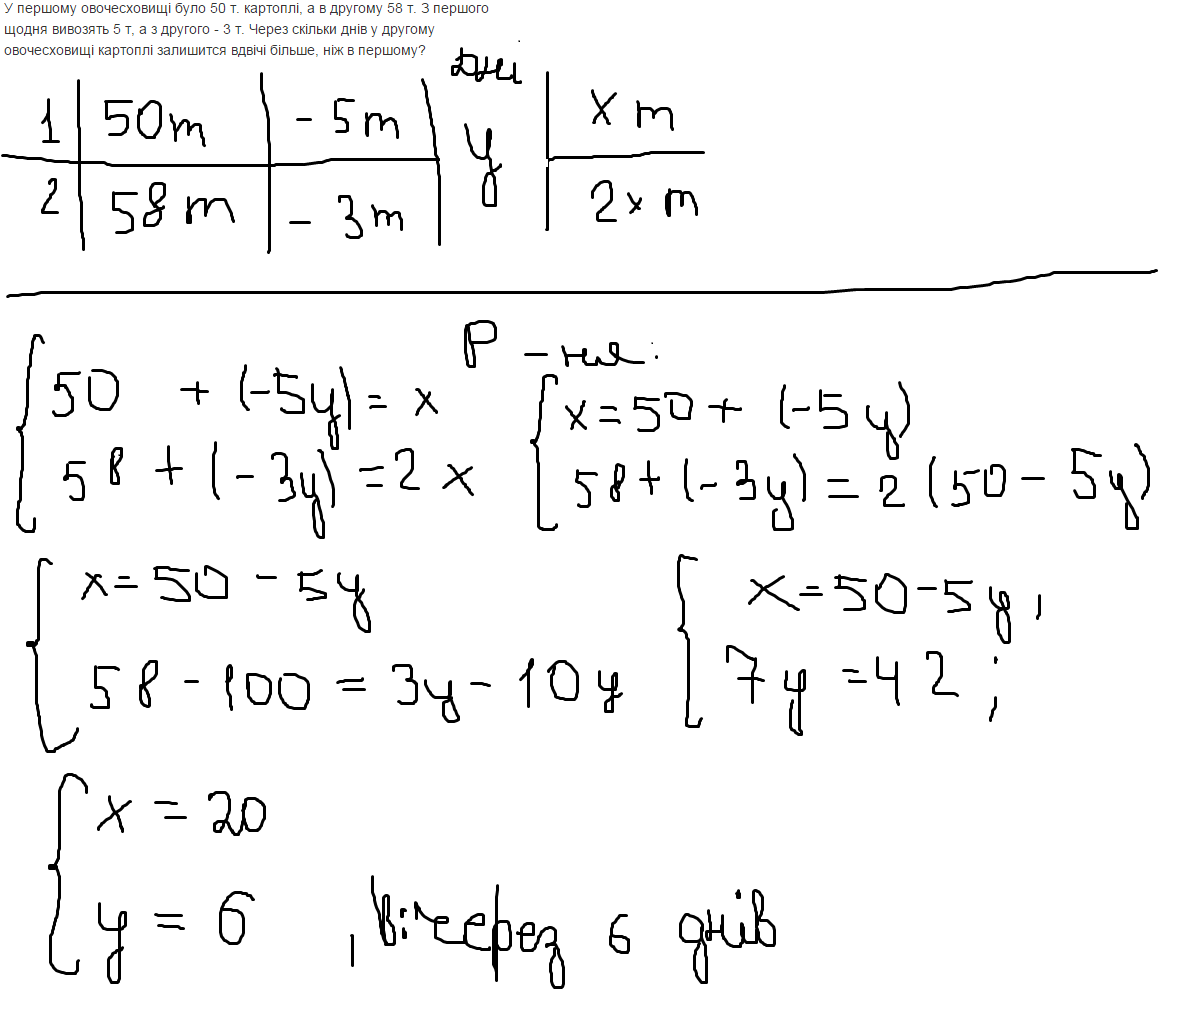 У першому овочесховищі було 50 т. картоплі, а в другому 58 т. З першого
щодня вивозять 5 т, а з другого - 3 т. Через скільки днів у другому
овочесховищі картоплі залишится вдвічі більше, ніж в першому?
дні
1 50т - 5т у х т
2 58 т - 3 т 2х т
Р - ння:
50 + (-5у) = х
58 + (- 3у) = 2 х
х = 50 + (-5 у)
58 + (- 3у) = 2 (50 - 5у)
х = 50 - 5у
58 - 100 = 3у - 10 у
х = 50 - 5 у,
7 у = 42;
х = 20
у = 6 , Ві: через 6 днів